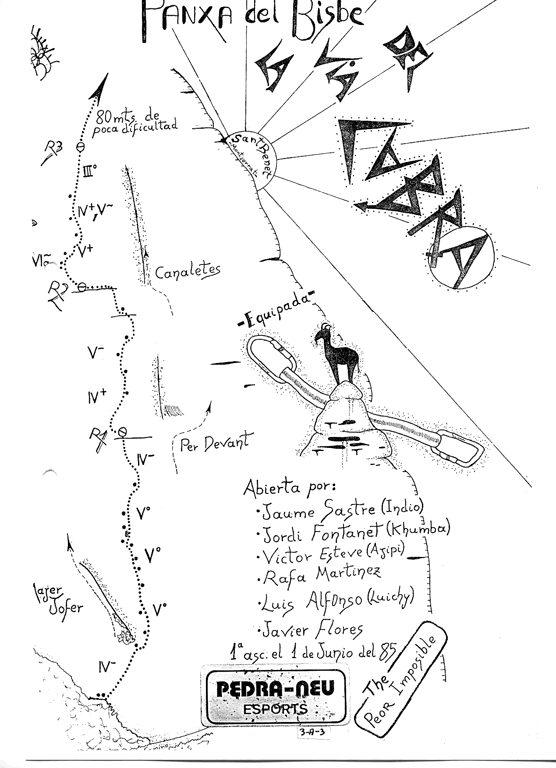 PANXA del Bisbe
LA VIA DEL
LABRA
Sant Benet
80 mts. de
poca dificultad
R3
III°
IV+, V-
V+
VI-
R2
Canaletes
-Equipada-
V-
IV+
R1
Per Devant
IV-
Abierta por:
·Jaume Sastre (Indio)
·Jordi Fontanet (Khumba)
·Victor Esteve (Ajipi)
·Rafa Martinez
·Luis Alfonso (Luichy)
·Javier Flores
1ª asc. el 1 de Junio del 85
V°
V°
V°
Jofer
IV-
The
PEOR Imposible
PEDRA-NEU
ESPORTS
3-A-3